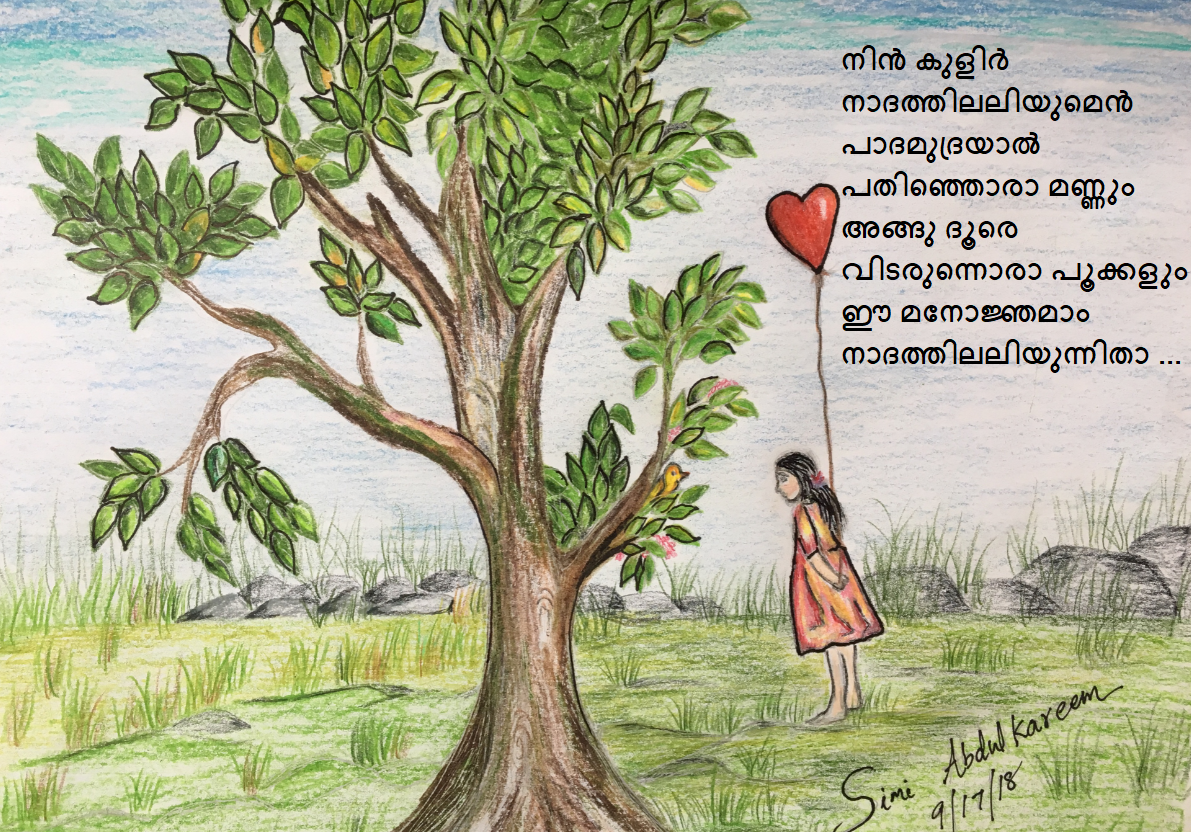 നിൻ കുളിർ
നാദത്തിലലിയുമെൻ
പാദമുദ്രയാൽ
പതിഞ്ഞൊരാ മണ്ണും
അങ്ങു ദൂരെ
വിടരുന്നൊരാ പൂക്കളും
ഈ മനോജ്ഞമാം
നാദത്തിലലിയുന്നിതാ ...
Simi Abdul Kareem
9/17/18